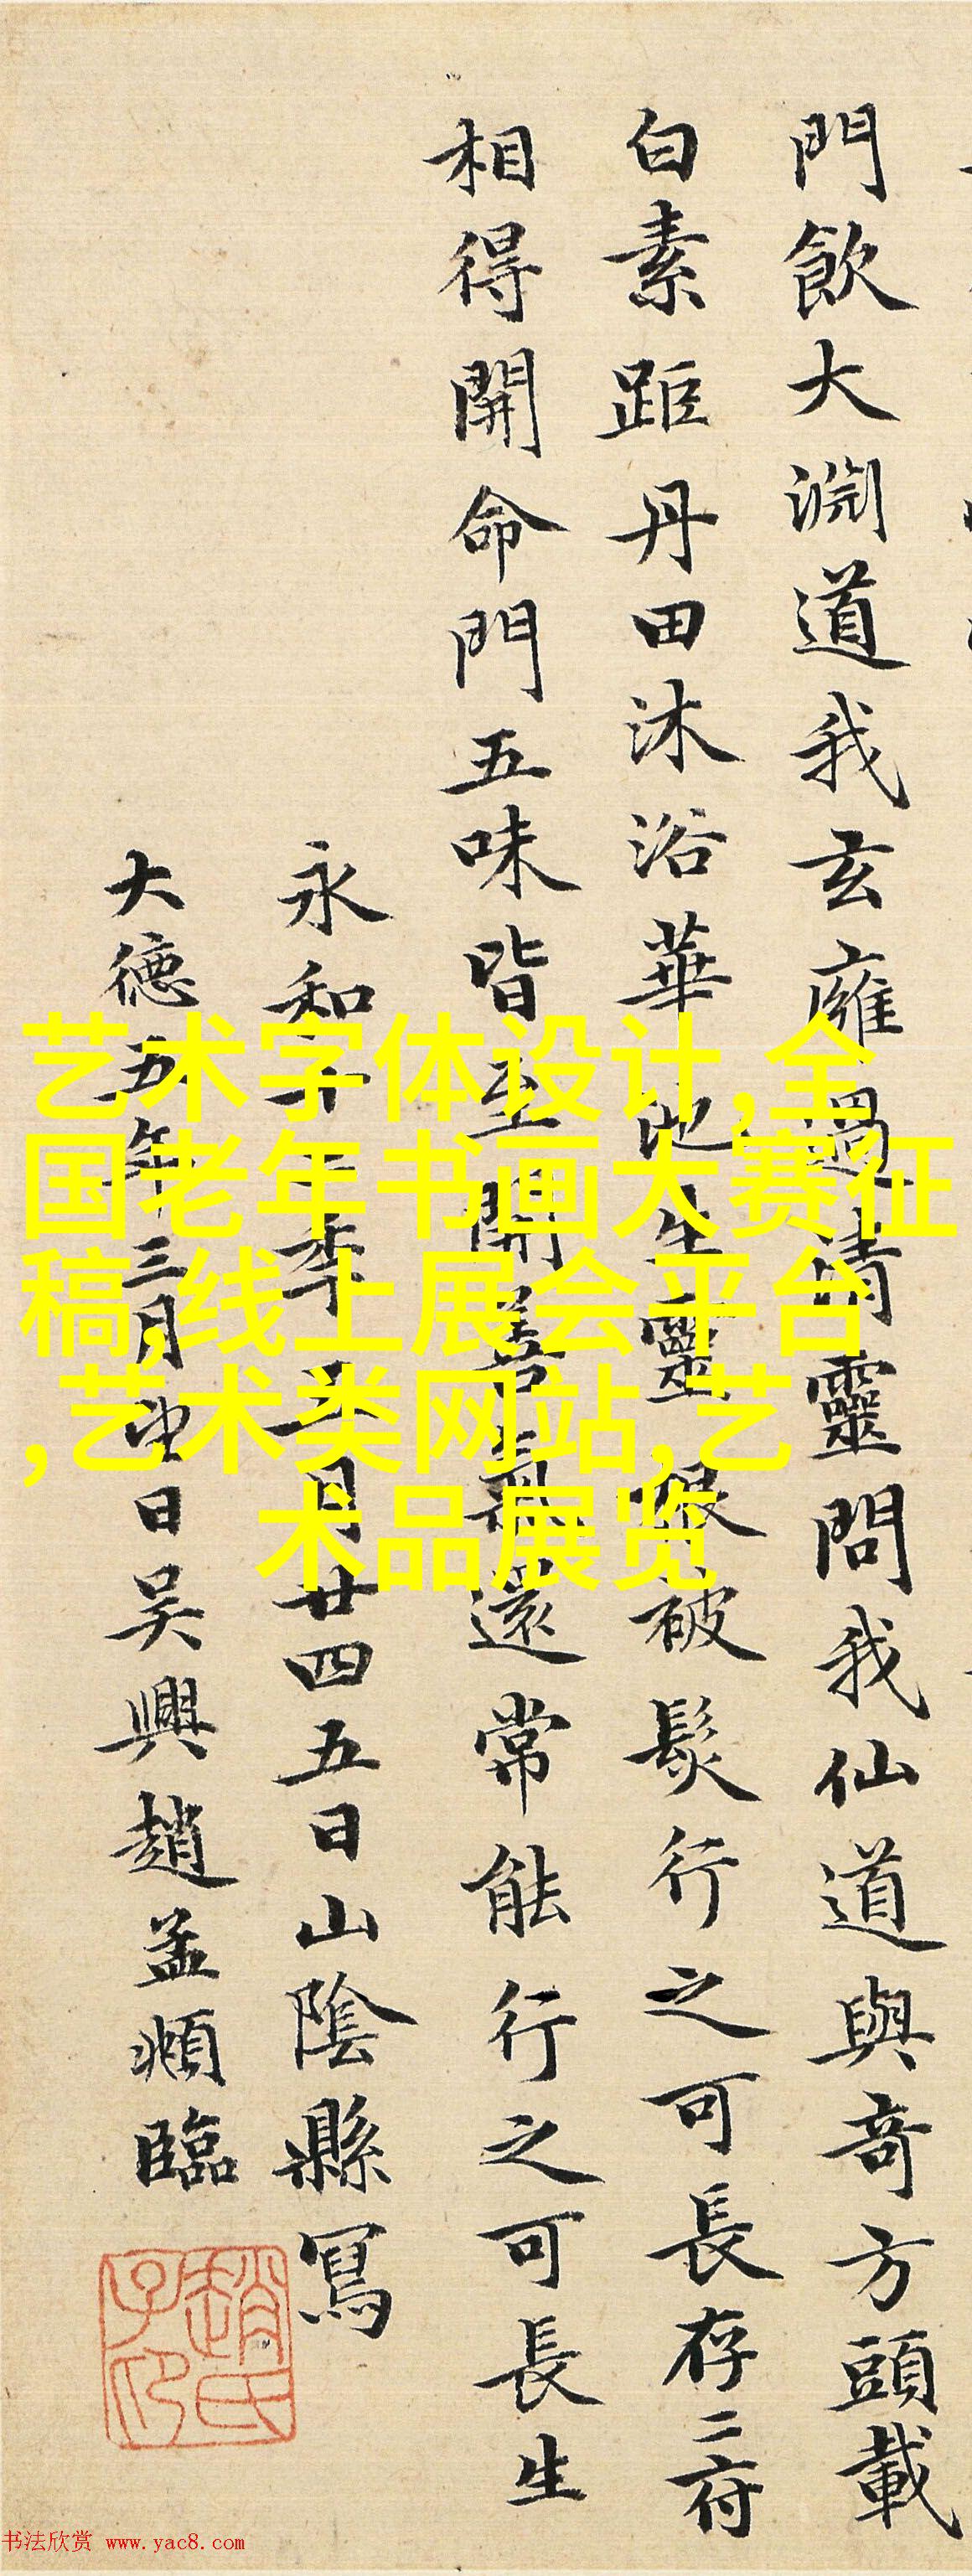 門飲大淵道我玄廱過清靈問我仙道與竒方頭載
白素距丹田沐浴華池生靈根被髮行之可長存二府
相得開命門五味皆至開善氣還常能行之可長生
永和十二年五月廿四五日山陰縣寫
大德五年三月日吳興趙孟頫臨
趙氏子昂
艺术字体设计,全
国老年书画大赛征
稿,线上展会平台
,艺术类网站,艺
术品展览
书法欣赏 www.yac8.com